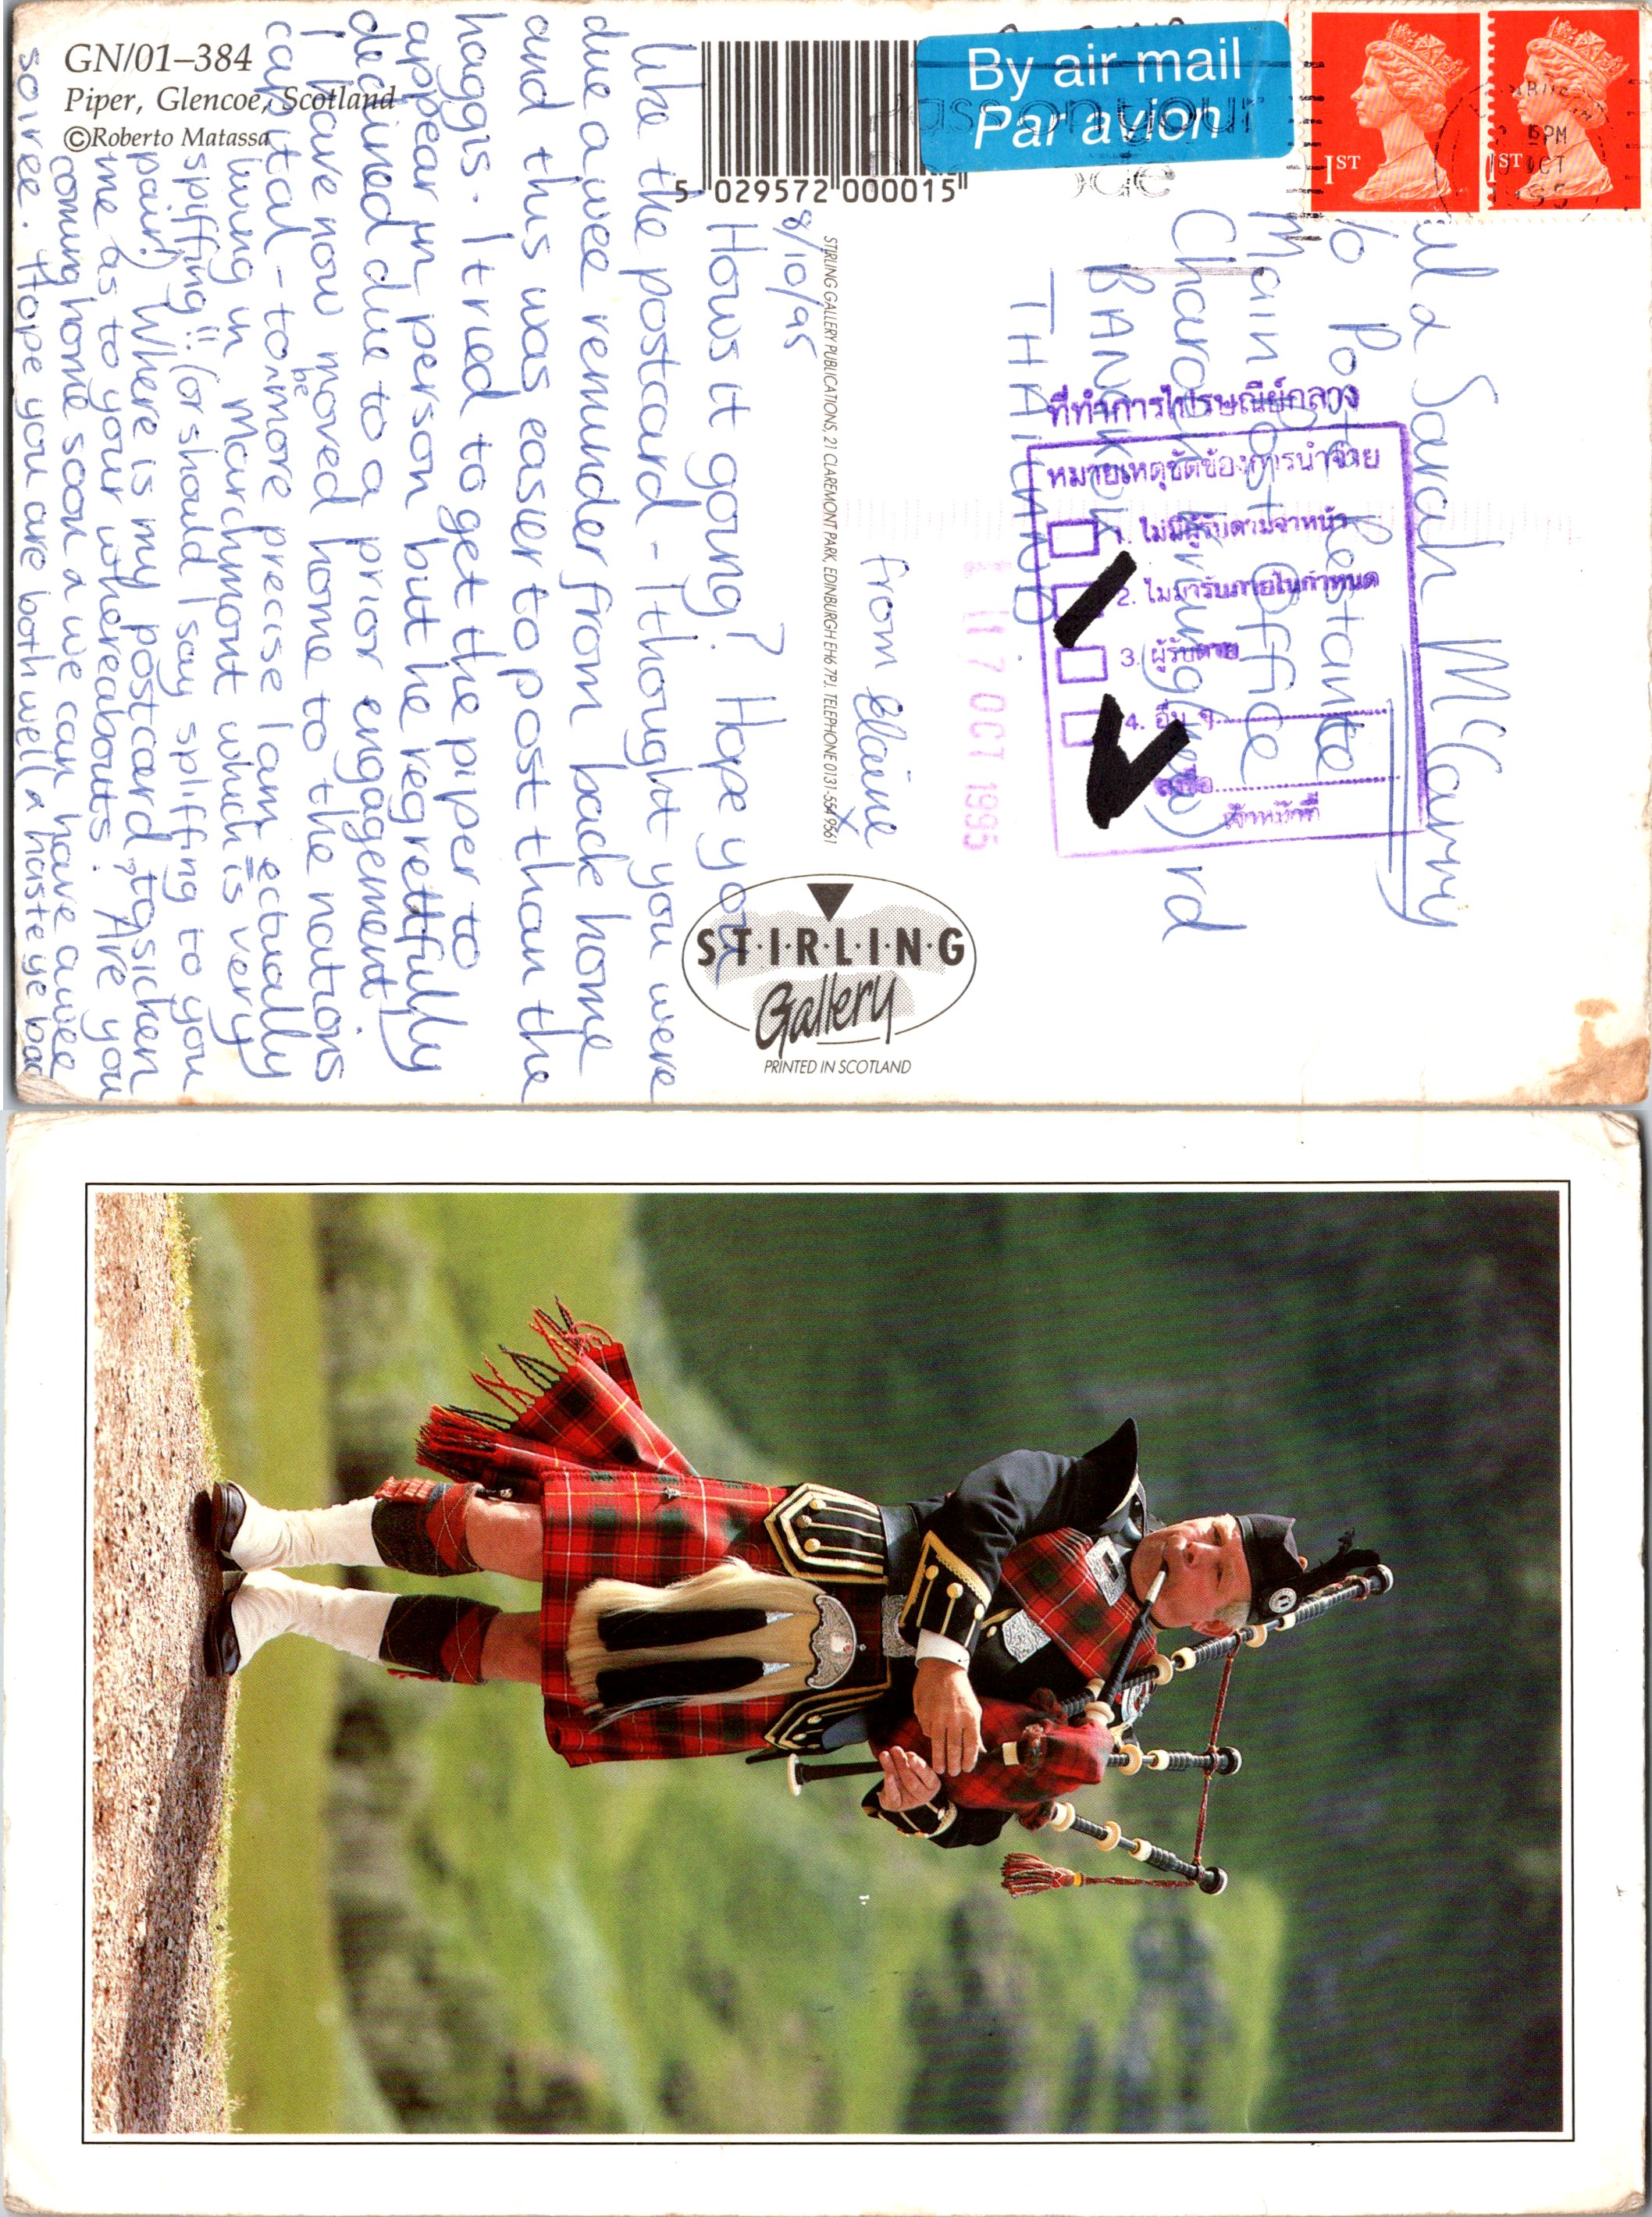 GN/01–384
Piper, Glencoe, Scotland
©Roberto Matassa
8/10/95
Hows it going? Hope you
like the postcard - I thought you were
due a wee reminder from back home
and this was easier to post than the
haggis. I tried to get the piper to
appear in person but he regrettfully
declined due to a prior engagement.
I have now moved home to the nations
capital - to be more precise I am ectually
living in Marchmont which is very
spiffing!! (or should I say spliffing to you
pair!) Where is my postcard to sicken
me as to your whereabouts? Are you
coming home soon & we can have a wee
soiree. Hope you are both well & haste ye bac
from Elaine
X
STIRLING GALLERY PUBLICATIONS, 21 CLAREMONT PARK, EDINBURGH EH6 7PJ. TELEPHONE 0131-554 9561
5 029572 000015
S·T·I·R·L·I·N·G
Gallery
PRINTED IN SCOTLAND
By air mail
Par avion
pass on your
1ST
1ST
5PM
OCT
Sarah McGarry
Poste Restante
Main Post Office
Charoen Krung Rd
BANGKOK
THAILAND
17 OCT 1995
ที่ทำการไปรษณีย์กลาง
หมายเหตุขัดข้องการนำจ่าย
1. ไม่มีผู้รับตามจ่าหน้า
2. ไม่มารับภายในกำหนด
3. ผู้รับตาย
4. อื่น ๆ
ลงชื่อ
เจ้าหน้าที่